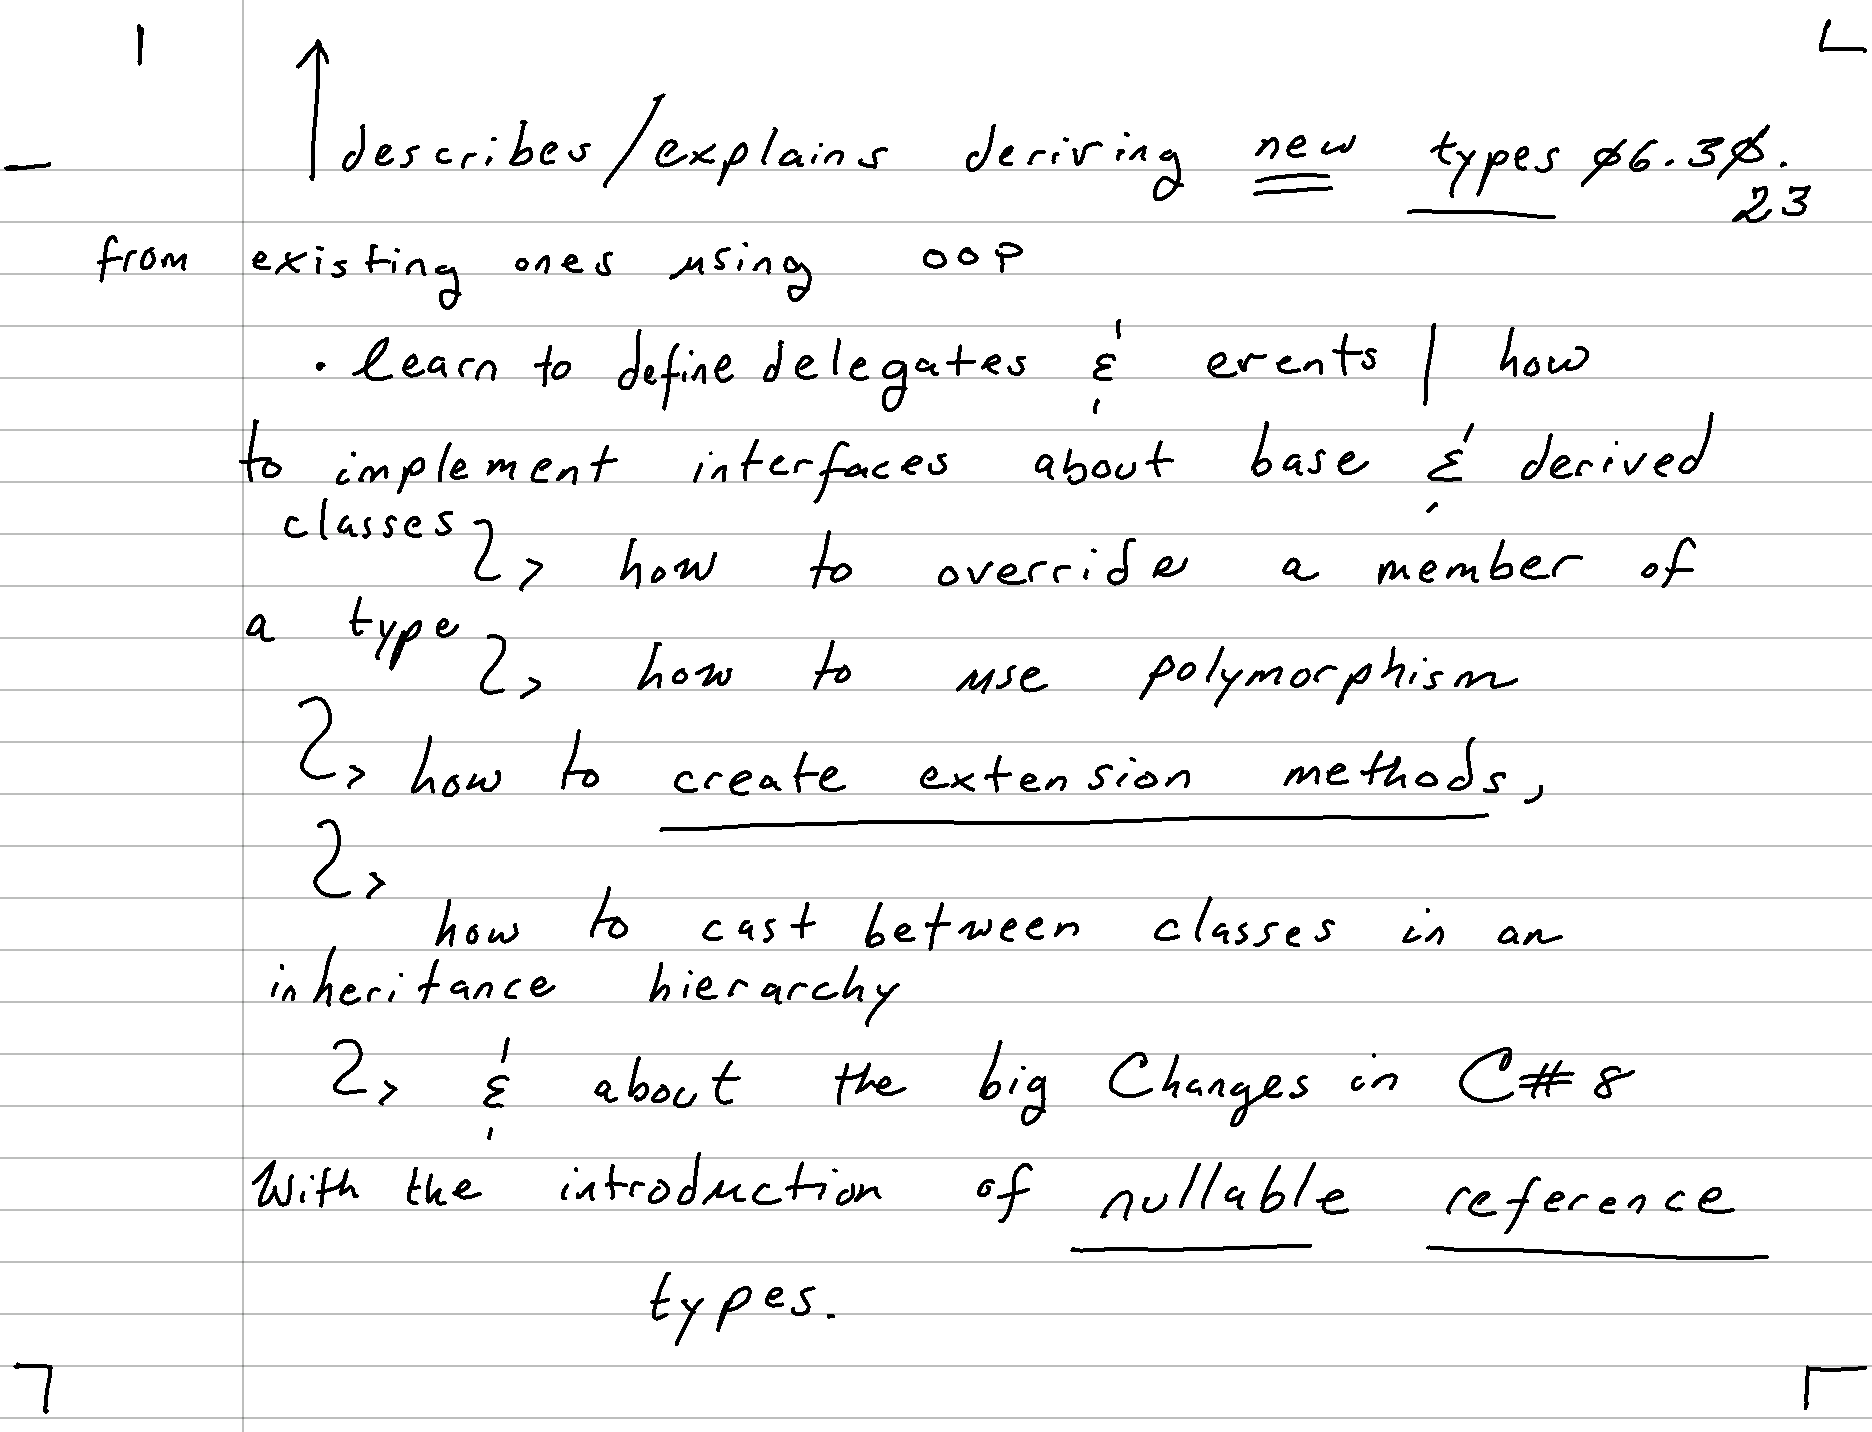 ↑ describes/explains deriving new types 06.30.
23
from existing ones using OOP
· learn to define delegates & events | how
to implement interfaces about base & derived
classes
> how to override a member of
a type
> how to use polymorphism
> how to create extension methods,
>
how to cast between classes in an
inheritance hierarchy
> & about the big Changes in C# 8
With the introduction of nullable reference
types.